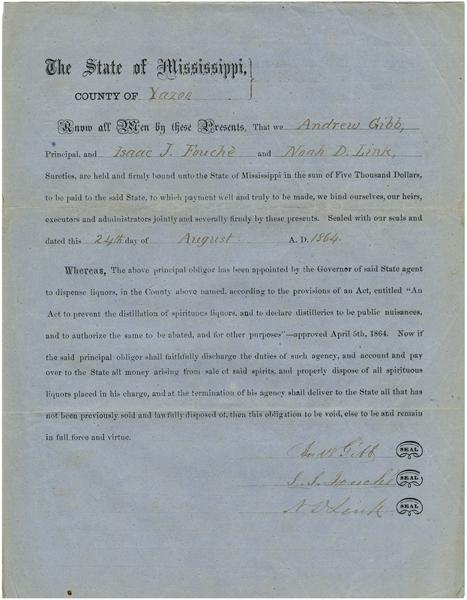 The State of Mississippi,
COUNTY OF Yazoo
Know all Men by these Presents, That we Andrew Gibb,
Principal, and Isaac J. Fouchè and Noah D. Link,
Sureties, are held and firmly bound unto the State of Mississippi in the sum of Five Thousand Dollars,
to be paid to the said State, to which payment well and truly to be made, we bind ourselves, our heirs,
executors and administrators jointly and severally firmly by these presents. Sealed with our seals and
dated this 24th day of August A. D. 1864.
Whereas, The above principal obligor has been appointed by the Governor of said State agent
to dispense liquors, in the County above named, according to the provisions of an Act, entitled "An
Act to prevent the distillation of spirituous liquors, and to declare distilleries to be public nuisances,
and to authorize the same to be abated, and for other purposes"—approved April 5th, 1864. Now if
the said principal obligor shall faithfully discharge the duties of such agency, and account and pay
over to the State all money arising from sale of said spirits, and properly dispose of all spirituous
liquors placed in his charge, and at the termination of his agency shall deliver to the State all that has
not been previously sold and lawfully disposed of, then this obligation to be void, else to be and remain
in full force and virtue.
Gibb SEAL
Fouchè SEAL
N D Link SEAL